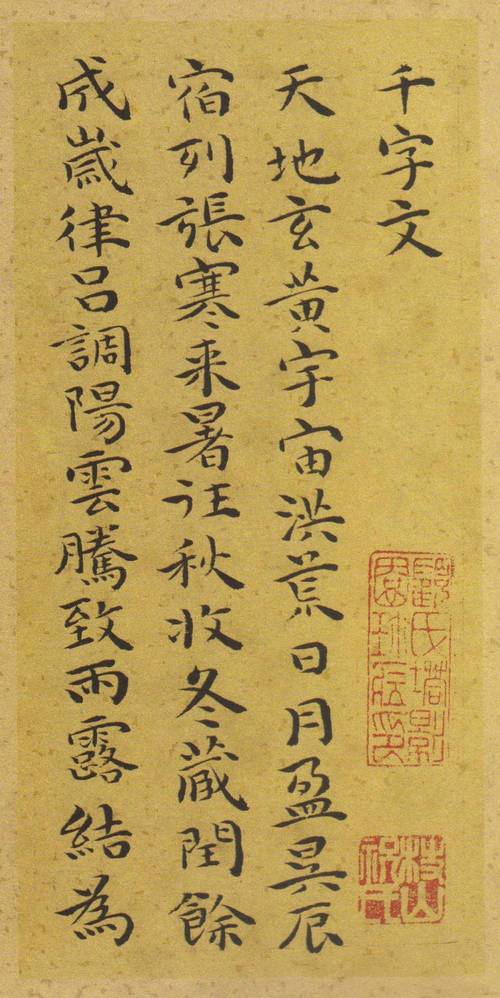 千字文
天地玄黄宇宙洪荒日月盈昃辰
宿列張寒来暑往秋收冬藏閏餘
成歲律吕調陽雲騰致雨露結為
顧氏塔影園珍藏印